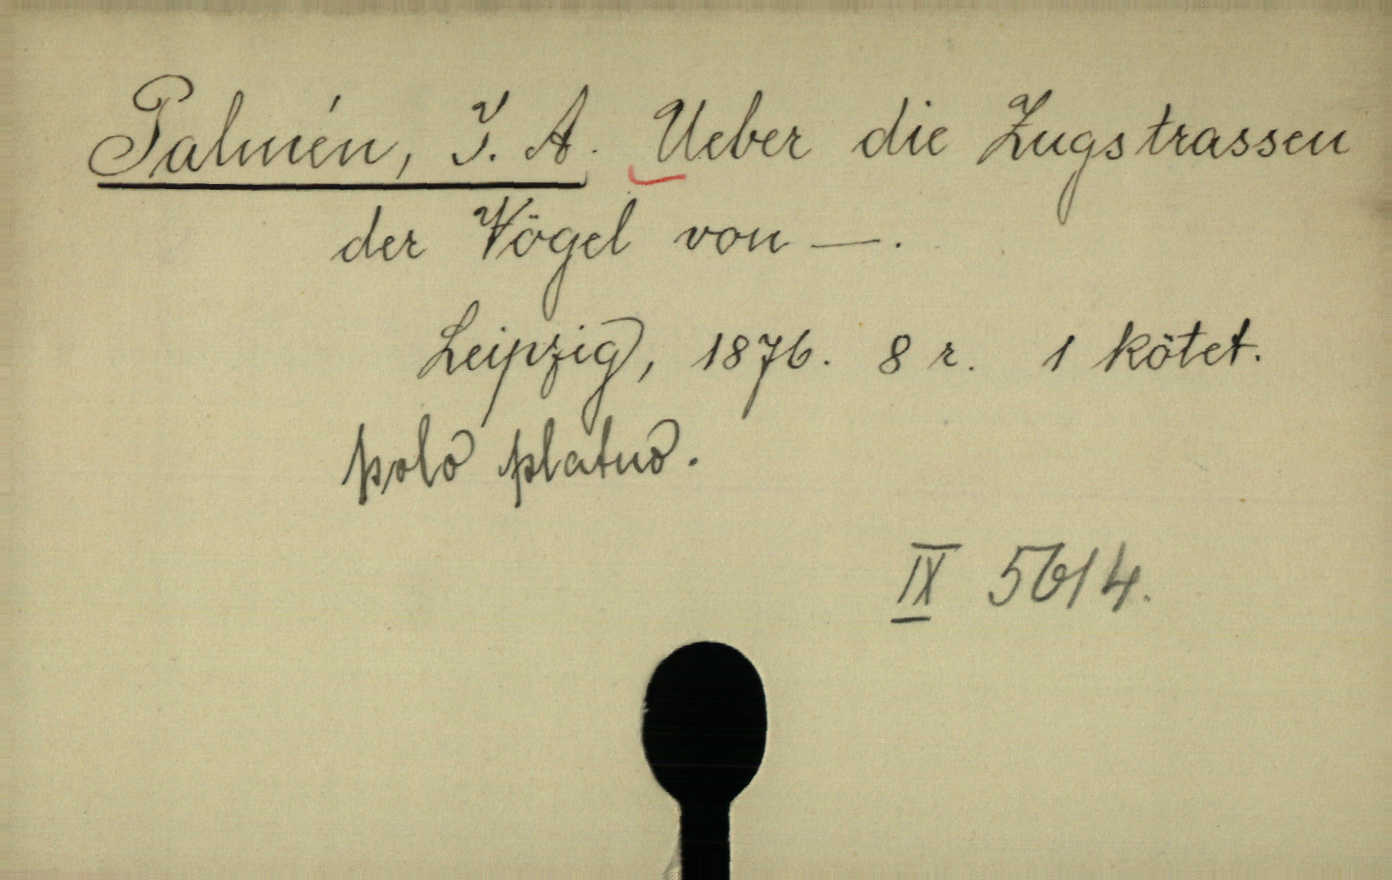 Palmén, J. A. Ueber die Zugstrassen
der Vögel von —.
Leipzig, 1876. 8 r. 1 kötet.
polo platno.
IX 5614.